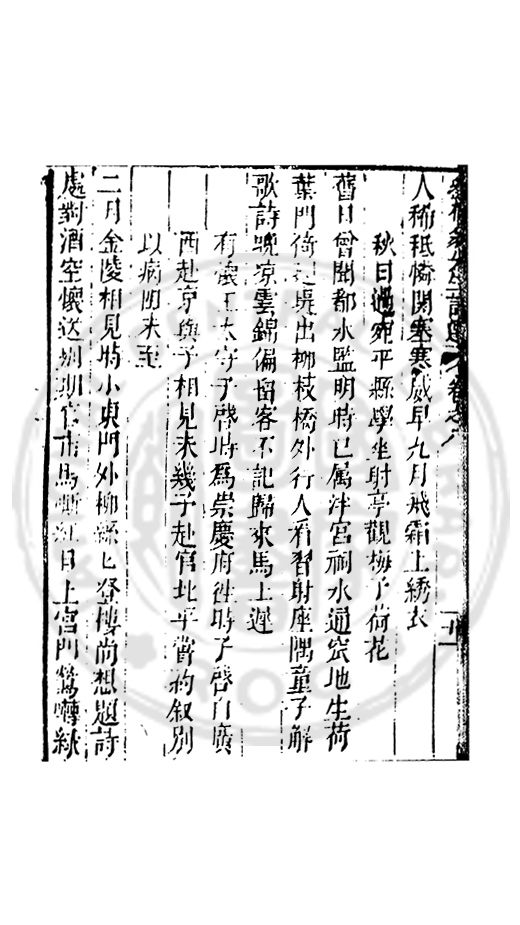 人稀秪憐關塞寒威早九月飛霜上綉衣
秋日過宛平縣學坐射亭觀梅子荷花
舊日曾聞都水監明時已属泮宮祠水通窓地生荷
葉門倚邊境出柳枝橋外行人看習射座隅童子解
歌詩晚凉雲錦偏留客不記歸來馬上遲
有懷王太守子啓時為崇慶府徃時子啓自廣
西赴京與予相見未幾予赴官北平嘗約叙别
以病阻未至
二月金陵相見時小東門外柳絲七登樓尚想題詩
處對酒空懷送别期官
馬嘶紅日上宮門鶯囀綠